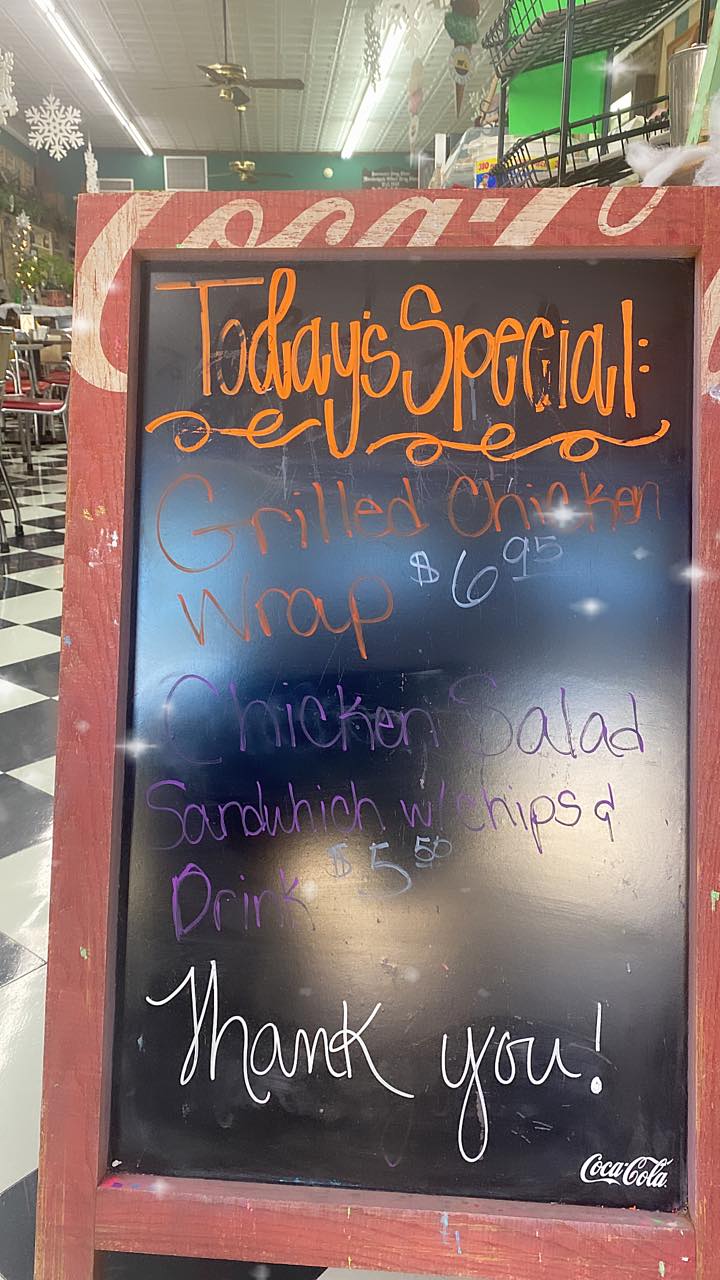 Coca-Co
Today's Special:
Grilled Chicken
Wrap $6.95
Chicken Salad
Sandwhich w/chips &
Drink $5.50
Thank you!
Coca-Cola